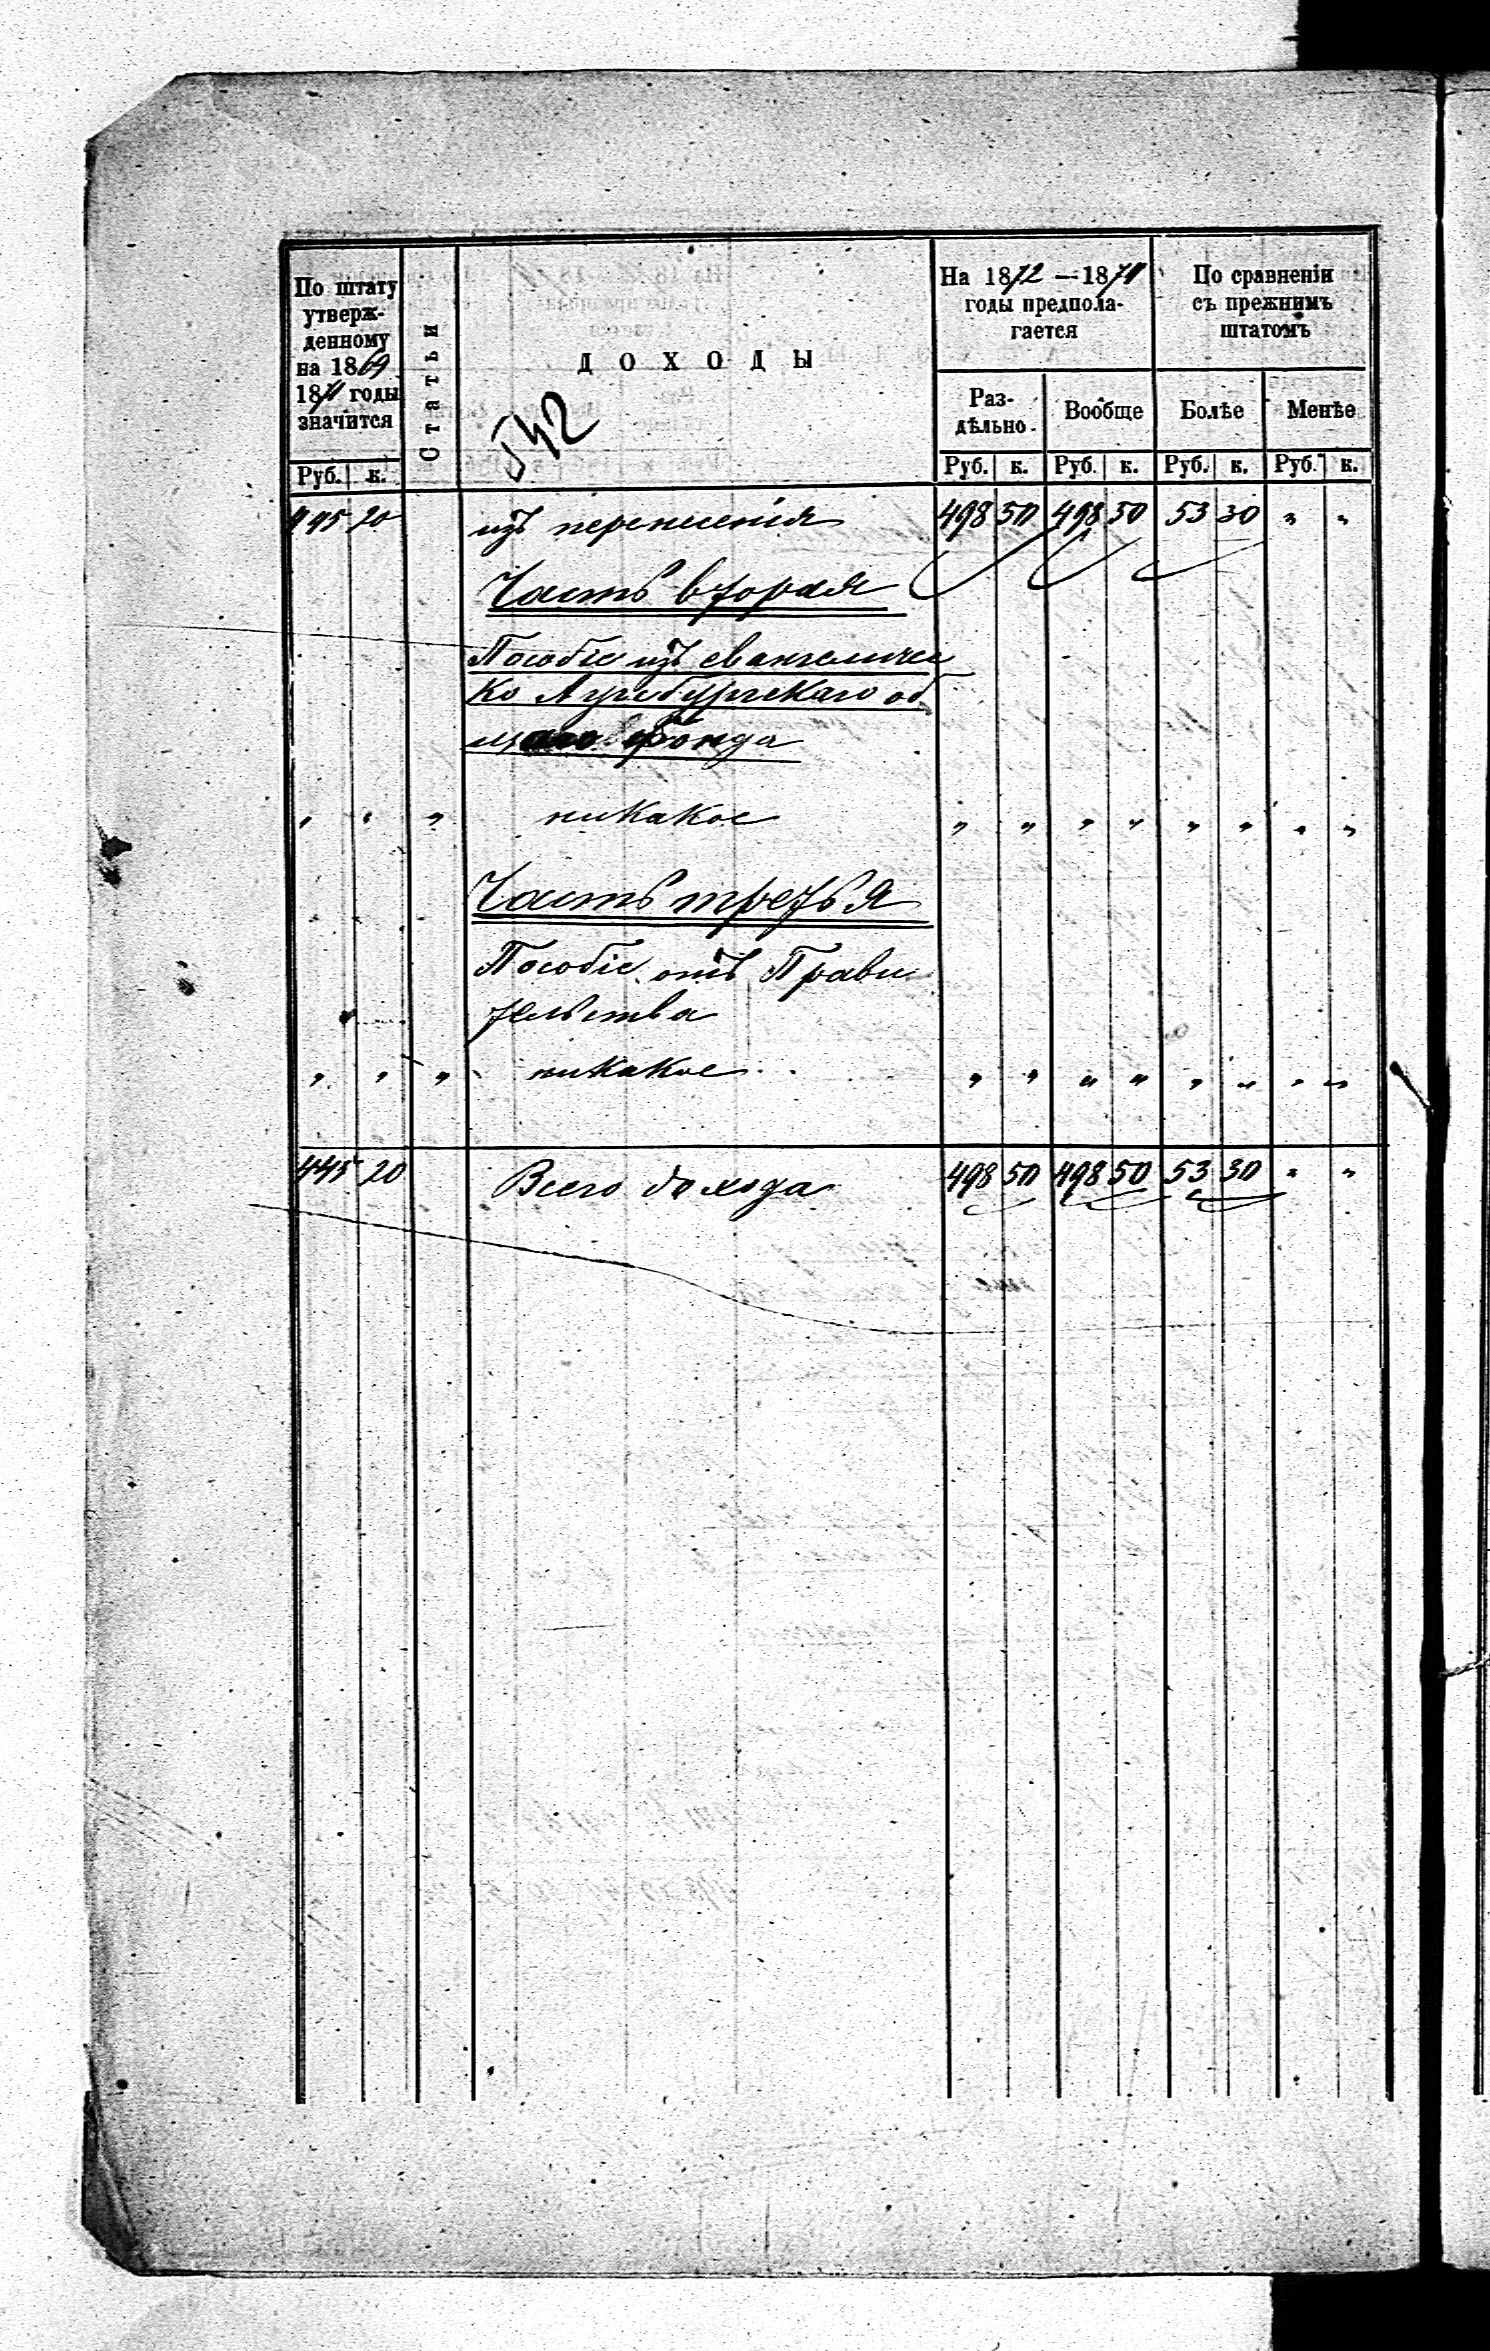 По штату
утверж-
денному
на 1869
1871 годы
значится
Руб. к.
Статьи
ДОХОДЫ
542
На 1872 — 1874
годы предпола-
гается
Раз-
дѣльно.
Руб. к.
Вообще
Руб. к.
По сравненіи
съ прежнимъ
штатомъ
Болѣе
Руб. к.
Менѣе
Руб. к.
445 20 изъ перенесенія 498 50 498 50 53 30 " "
Часть вторая
Пособіе изъ евангеличес
ко Аугсбургскаго об
щаго фонда
" " " никакое " " " " " " " "
Часть третья
Пособіе отъ Прави
тельства
" " " никакое " " " " " " " "
445 20 Всего дохода 498 50 498 50 53 30 " "